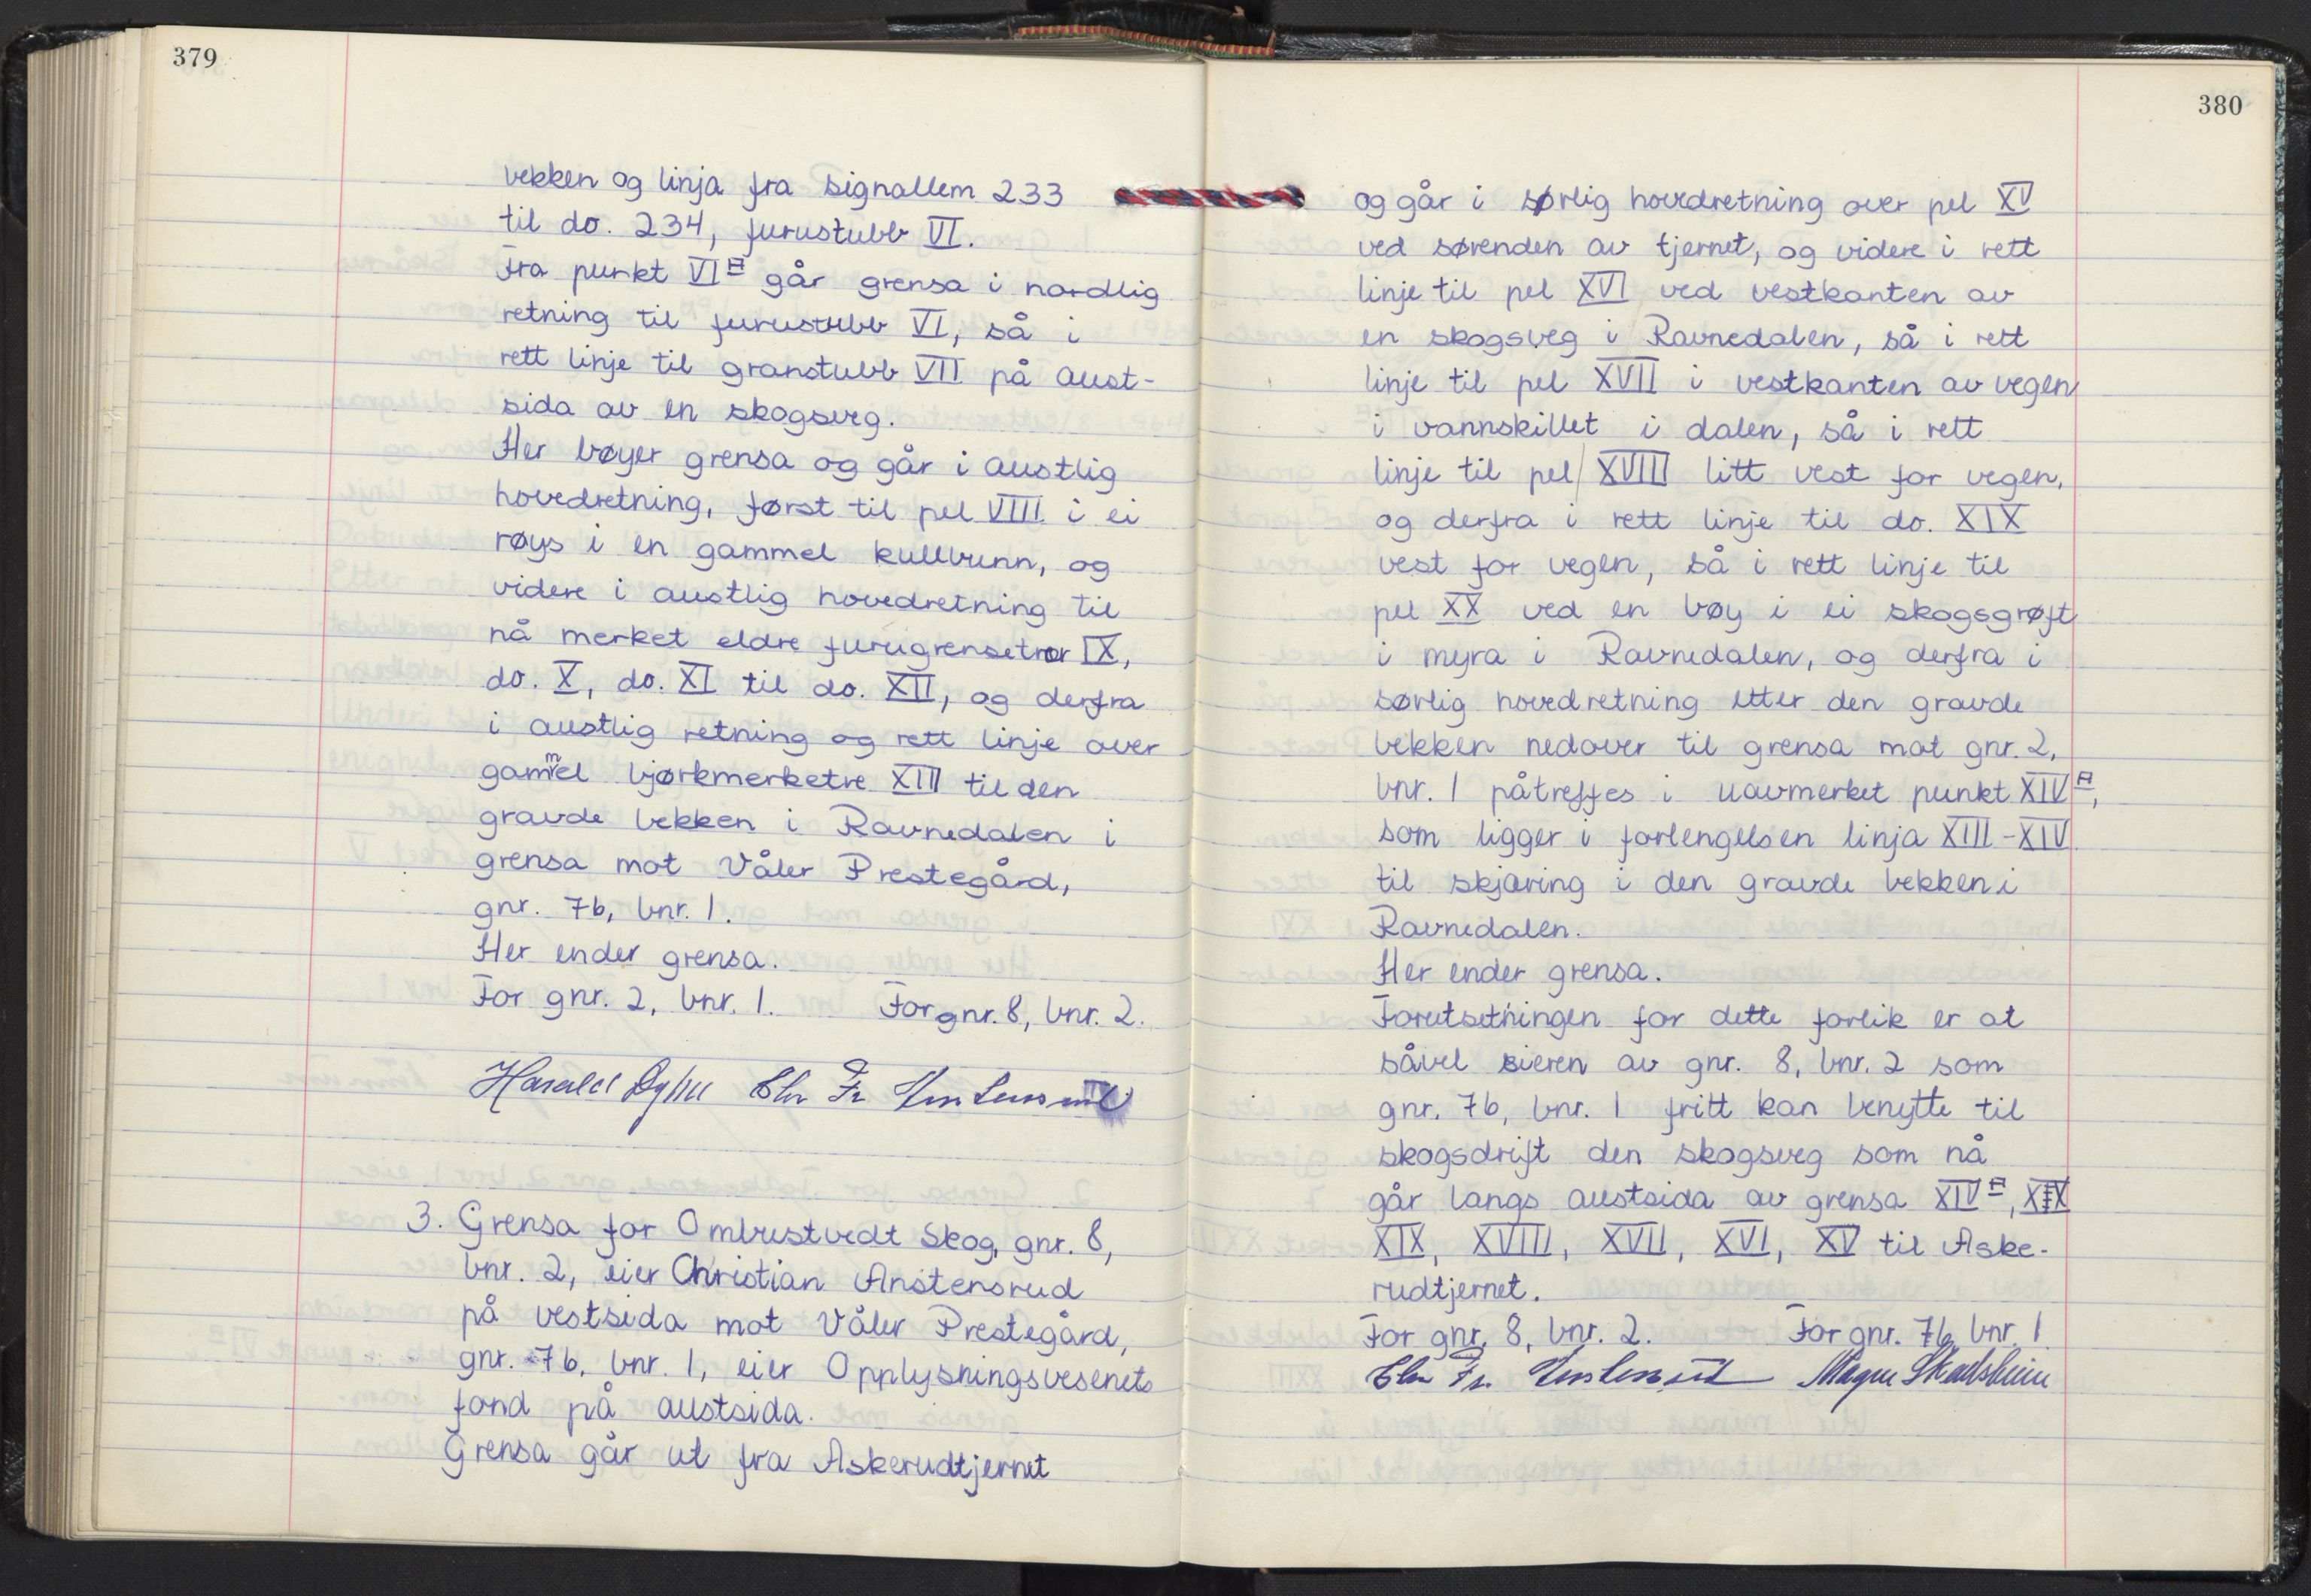 379
bekken og linja fra signallem 233
til do. 234, furustubb VI.
Fra punkt VI a går grensa i nordlig
retning til furustubb VI, så i
rett linje til granstubb VII på aust-
sida av en skogsveg.
Her bøyer grensa og går i austlig
hovedretning, først til pel VIII i ei
røys i en gammel kullbunn, og
videre i austlig hovedretning til
nå merket eldre furugrensetrær IX,
do. X, do. XI til do. XII, og derfra
i austlig retning og rett linje over
gammel bjørkmerketre XIII til den
gravde bekken i Ravnedalen i
grensa mot Våler Prestegård,
gnr. 76, bnr. 1.
Her ender grensa.
For gnr. 2, bnr. 1. For gnr. 8, bnr. 2.
Harald Chr Fr Anstensrud
3. Grensa for Ombustvedt Skog, gnr. 8,
bnr. 2, eier Christian Anstensrud
på vestsida mot Våler Prestegård,
gnr. 76, bnr. 1, eier Opplysningsvesenets
fond på austsida.
Grensa går ut fra Askerudtjernet
380
og går i sørlig hovedretning over pel XV
ved sørenden av tjernet, og videre i rett
linje til pel XVI ved vestkanten av
en skogsveg i Ravnedalen, så i rett
linje til pel XVII i vestkanten av vegen
i vannskillet i dalen, så i rett
linje til pel XVIII litt vest for vegen,
og derfra i rett linje til do. XIX
vest for vegen, så i rett linje til
pel XX ved en bøy i ei skogsgrøft
i myra i Ravnedalen, og derfra i
sørlig hovedretning etter den gravde
bekken nedover til grensa mot gnr. 2,
bnr. 1 påtreffes i uavmerket punkt XIV a,
som ligger i forlengelsen linja XIII - XIV
til skjæring i den gravde bekken i
Ravnedalen.
Her ender grensa.
Forutsetningen for dette forlik er at
såvel eieren av gnr. 8, bnr. 2 som
gnr. 76, bnr. 1 fritt kan benytte til
skogsdrift den skogsveg som nå
går langs austsida av grensa XIV a, XX
XIX, XVIII, XVII, XVI, XV til Aske-
rudtjernet.
For gnr. 8, bnr. 2. For gnr. 76, bnr. 1
Chr Fr. Anstensrud Magne Skadsheim